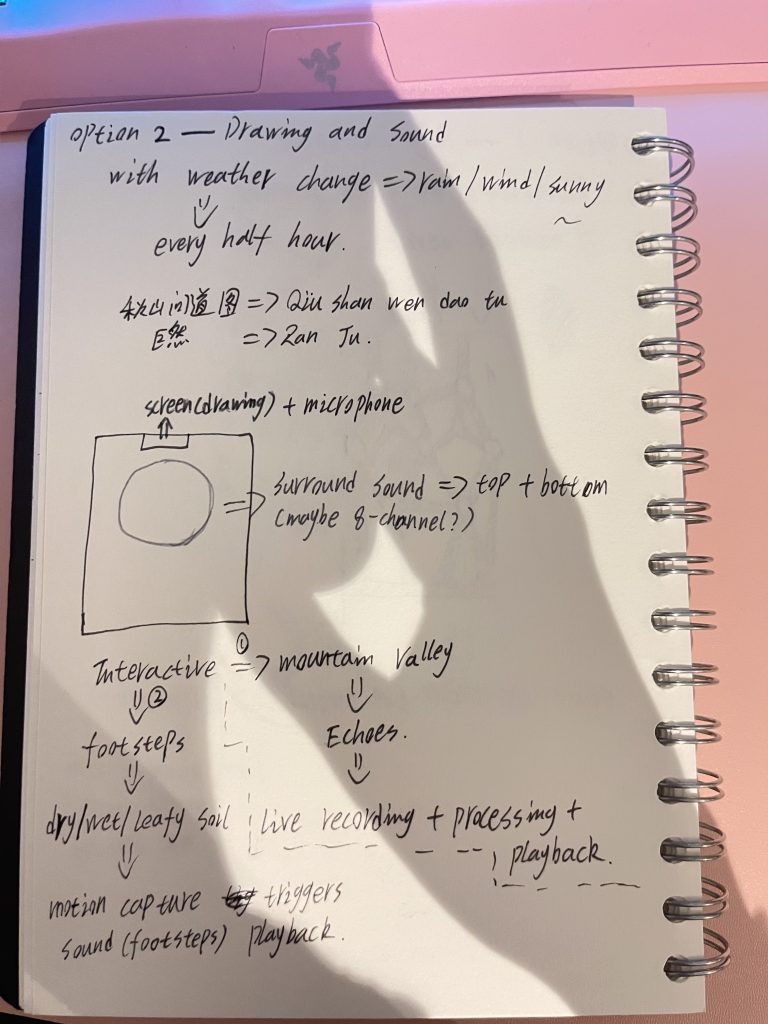 option 2 — Drawing and Sound
with weather change => rain/wind/sunny
every half hour.
秋山问道图 => Qiu shan wen dao tu
巨然 => Ran Ju.
screen(drawing) + microphone
surround sound => top + bottom
(maybe 8-channel?)
Interactive ① => mountain valley
②
footsteps
Echoes.
dry/wet/leafy soil
live recording + processing +
playback.
motion capture triggers
sound (footsteps) playback.